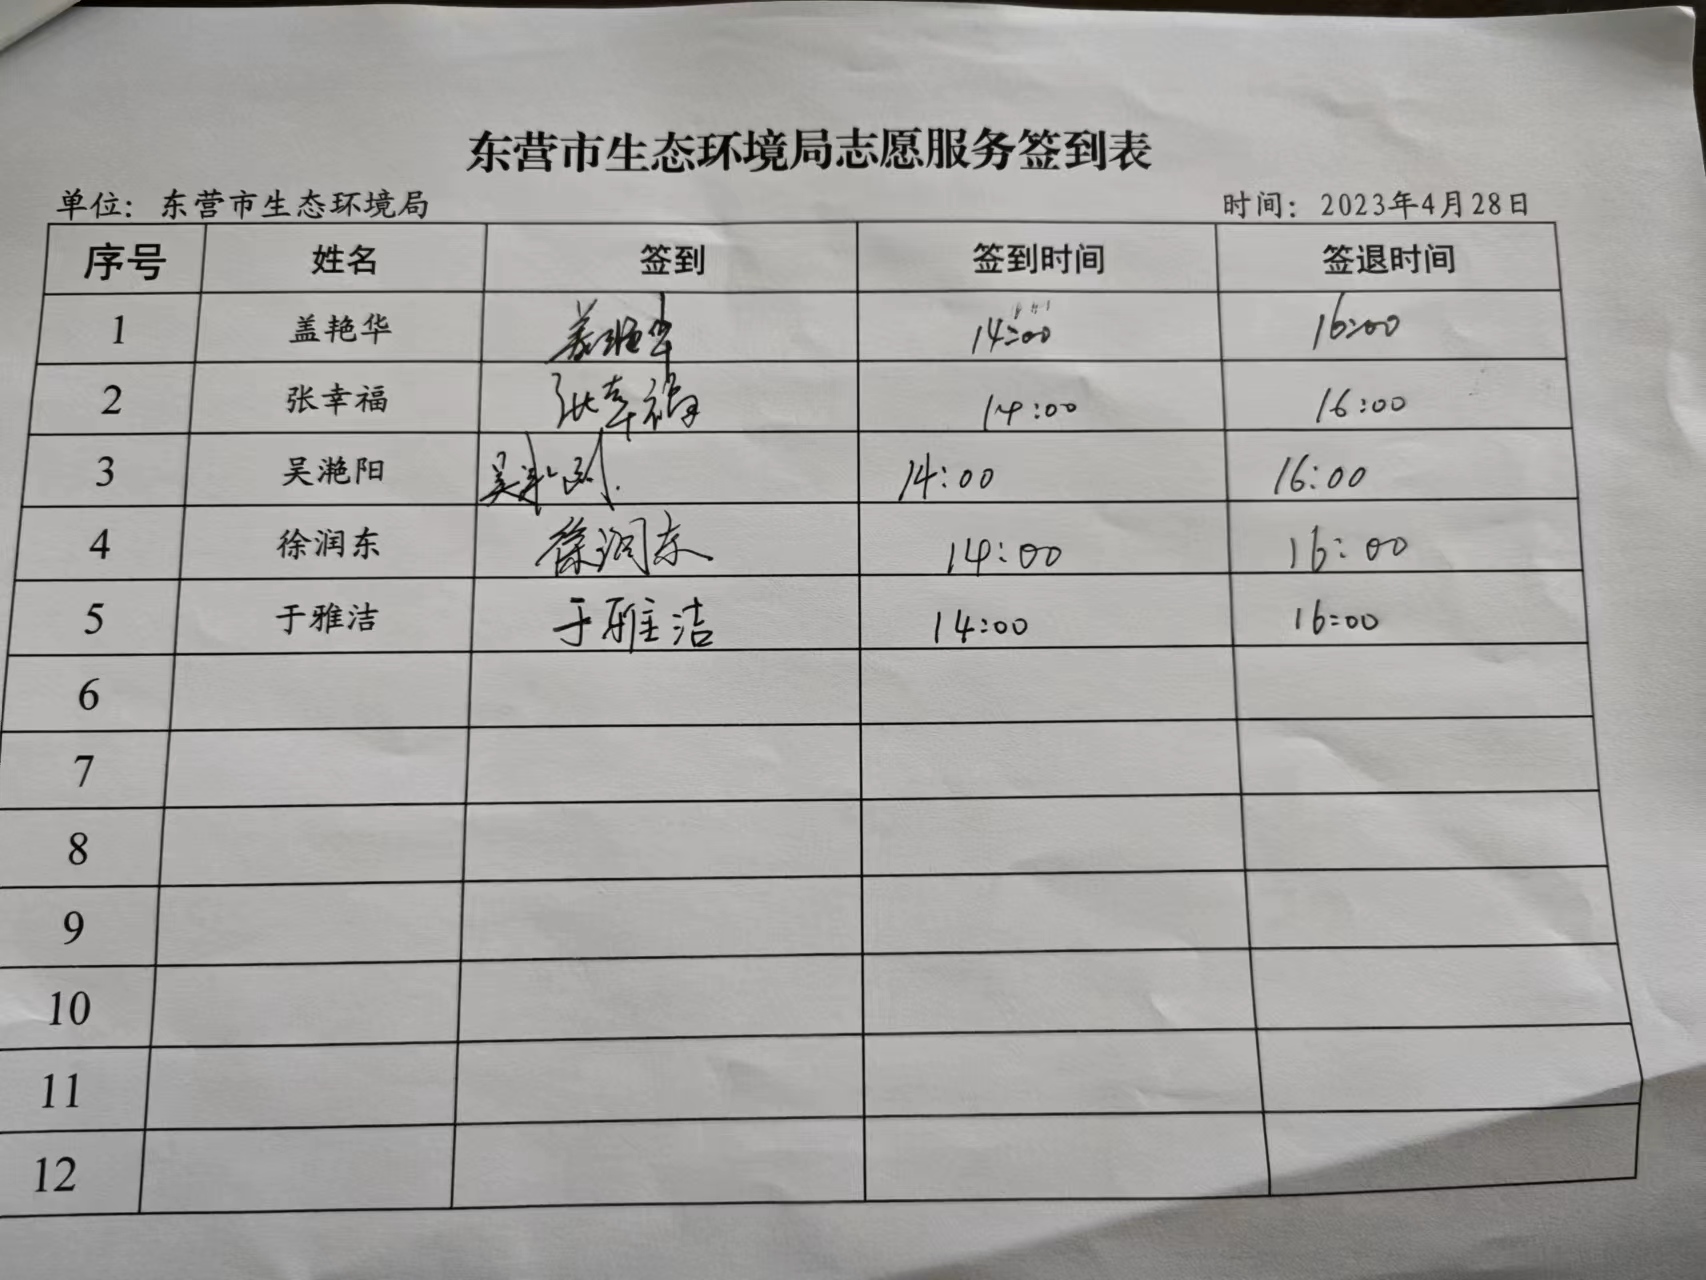 东营市生态环境局志愿服务签到表
单位：东营市生态环境局 时间：2023年4月28日
序号 姓名 签到 签到时间 签退时间
1 盖艳华 盖艳华 14:00 16:00
2 张幸福 张幸福 14:00 16:00
3 吴滟阳 吴滟阳 14:00 16:00
4 徐润东 徐润东 14:00 16:00
5 于雅洁 于雅洁 14:00 16:00
6
7
8
9
10
11
12